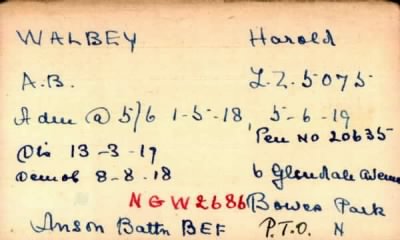 WALBEY Harold
A.B. L.Z. 5075
Adm @ 5/6 1-5-18, 5-6-19
Pen No 20635
Dis 13-3-19
Demob 8-8-18 6 Glendale Avenue
NGW2686 Bowes Park
Anson Battn BEF P.T.O. N